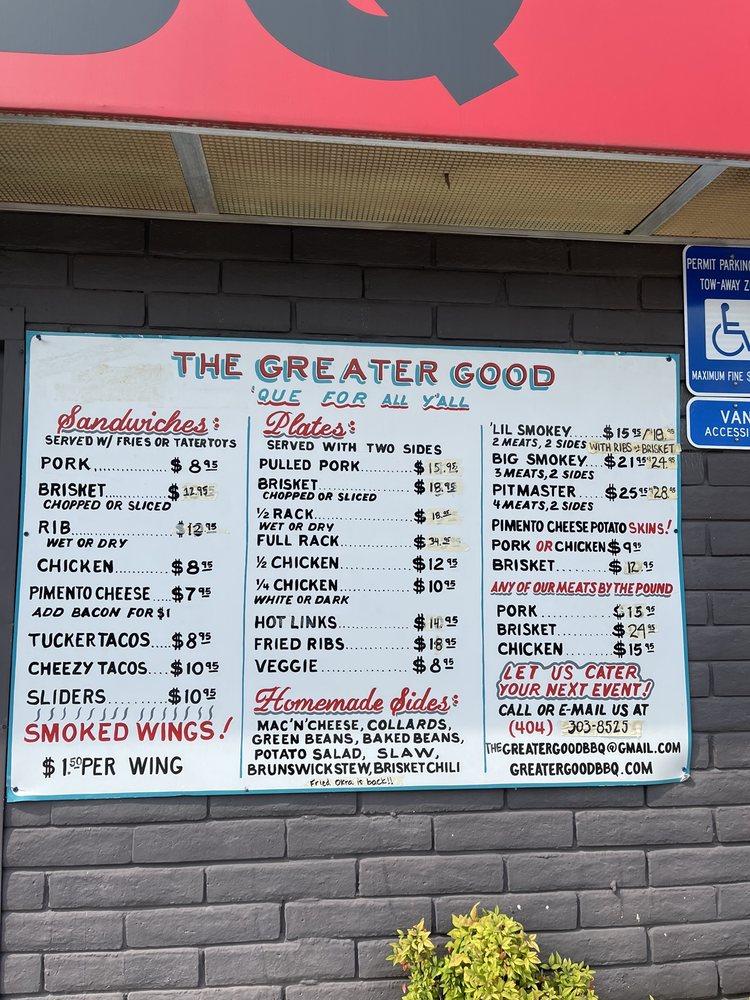 BQ
THE GREATER GOOD
'QUE FOR ALL Y'ALL
Sandwiches:
SERVED W/ FRIES OR TATERTOTS
PORK............ $8.95
BRISKET........ $12.95
CHOPPED OR SLICED
RIB............... $12.95
WET OR DRY
CHICKEN......... $8.95
PIMENTO CHEESE.... $7.95
ADD BACON FOR $1
TUCKERTACOS.... $8.95
CHEEZY TACOS.... $10.95
SLIDERS......... $10.95
SMOKED WINGS!
$1.50 PER WING
Plates:
SERVED WITH TWO SIDES
PULLED PORK........ $15.95
BRISKET............ $18.95
CHOPPED OR SLICED
1/2 RACK............ $18.95
WET OR DRY
FULL RACK........... $34.95
1/2 CHICKEN......... $12.95
1/4 CHICKEN......... $10.95
WHITE OR DARK
HOT LINKS.......... $14.95
FRIED RIBS......... $18.95
VEGGIE............. $8.95
Homemade Sides:
MAC'N'CHEESE, COLLARDS,
GREEN BEANS, BAKED BEANS,
POTATO SALAD, SLAW,
BRUNSWICK STEW, BRISKET CHILI
Fried Okra is back!!
'LIL SMOKEY...... $15.95/18.95
2 MEATS, 2 SIDES WITH RIBS or BRISKET
BIG SMOKEY.... $21.95/24.95
3 MEATS, 2 SIDES
PITMASTER.... $25.95/28.95
4 MEATS, 2 SIDES
PIMENTO CHEESE POTATO SKINS!
PORK OR CHICKEN $9.95
BRISKET........ $12.95
ANY OF OUR MEATS BY THE POUND
PORK........... $15.95
BRISKET........ $24.95
CHICKEN........ $15.95
LET US CATER
YOUR NEXT EVENT!
CALL OR E-MAIL US AT
(404) 303-8525
THEGREATERGOODBBQ@GMAIL.COM
GREATERGOODBBQ.COM
PERMIT PARKING
TOW-AWAY Z
MAXIMUM FINE $
VAN
ACCESSI